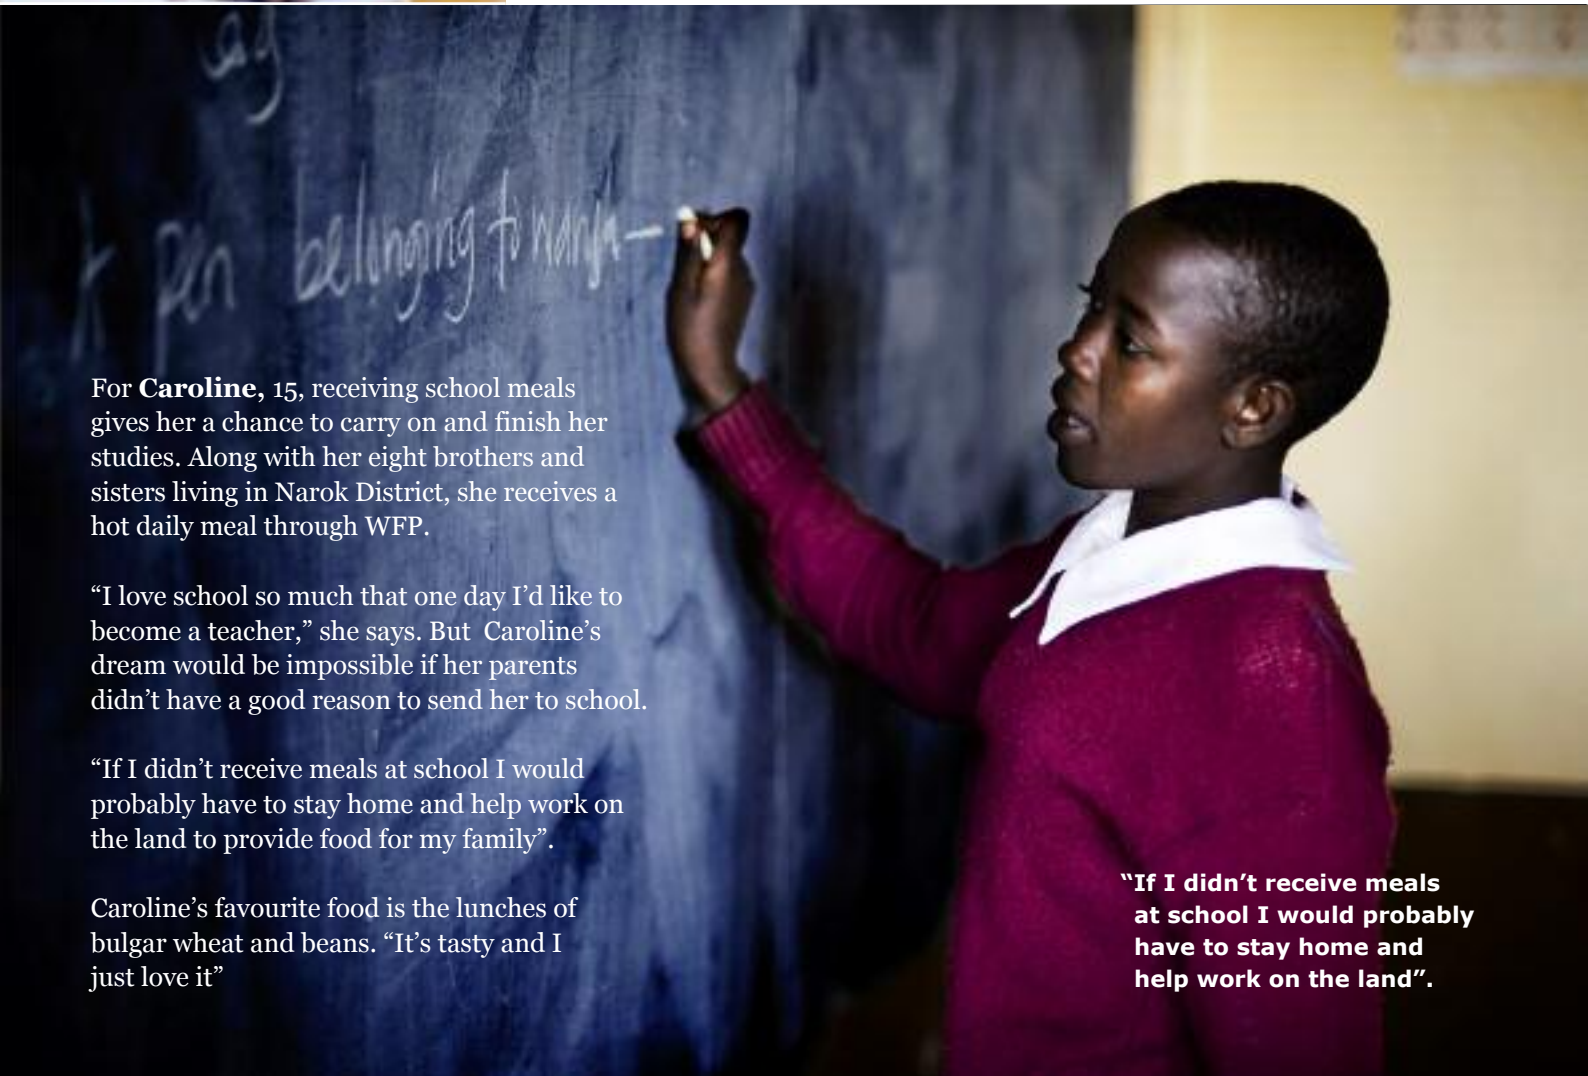 ag
pen belonging to wanja –
For Caroline, 15, receiving school meals
gives her a chance to carry on and finish her
studies. Along with her eight brothers and
sisters living in Narok District, she receives a
hot daily meal through WFP.
“I love school so much that one day I’d like to
become a teacher,” she says. But  Caroline’s
dream would be impossible if her parents
didn’t have a good reason to send her to school.
“If I didn’t receive meals at school I would
probably have to stay home and help work on
the land to provide food for my family”.
Caroline’s favourite food is the lunches of
bulgar wheat and beans. “It’s tasty and I
just love it”
“If I didn’t receive meals
at school I would probably
have to stay home and
help work on the land”.